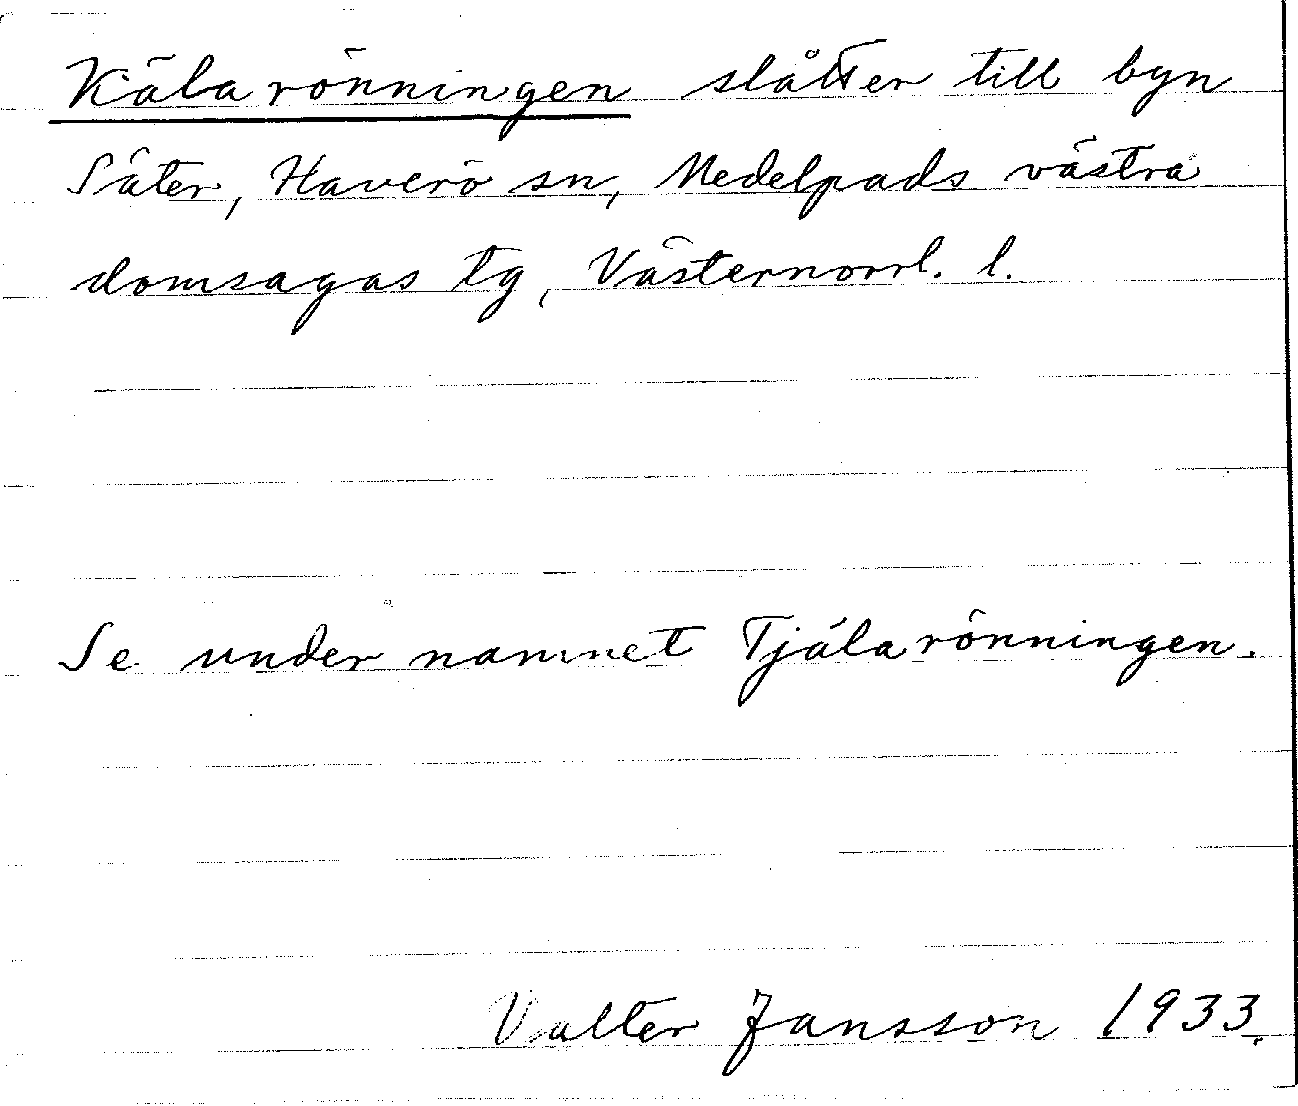 Kälarönningen slåtter till byn
Säter, Haverö sn, Medelpads västra
domsagas tg, Västernorrl. l.
Se under namnet Tjälarönningen.
Valter Jansson 1933.